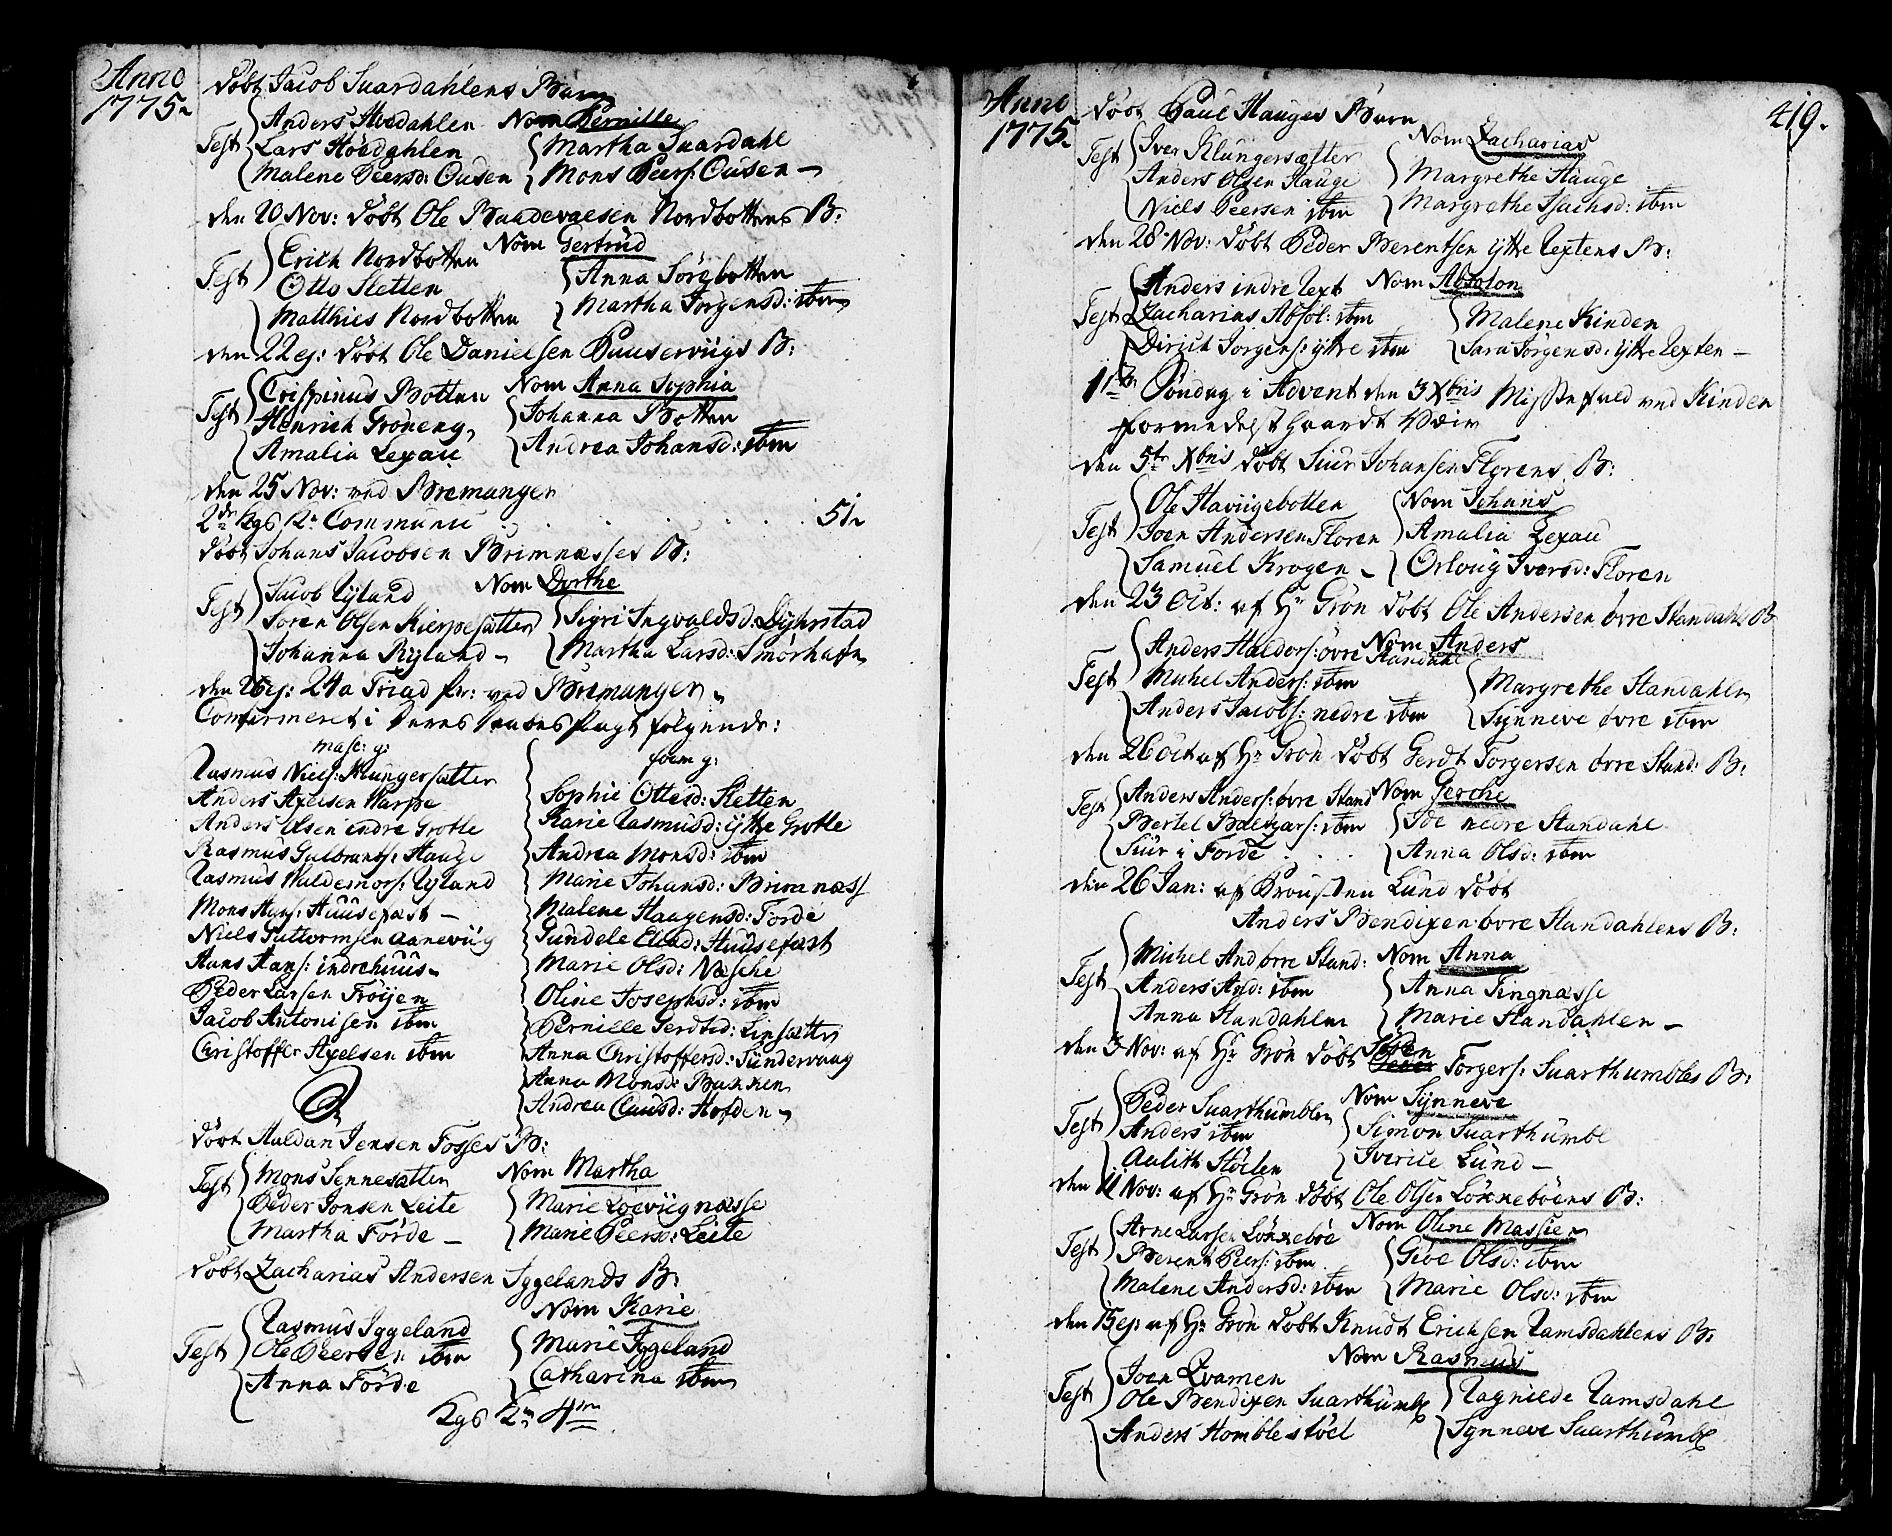 Anno
1775
døbt Jacob Suardahlens Barn
Nom Pernille
Test Anders Hvedahlen
Lars Høedahlen
Malene Peersd: Ousen
Martha Suardahl
Mons Peers: Ousen
den 20 Nov: døbt Ole Baadevaesen Nordbottens B:
Nom Gertrud
Test Erich Nordbotten
Otto Sletten
Matthies Nordbotten
Anna Sørgbotten
Martha Jørgensd: ibm
den 22 ej: døbt Ole Danielsen Buuserviigs B:
Nom Anna Sophia
Test Crispinus Botten
Henrich Grøneng
Amalia Lexau
Johanna Botten
Andrea Johansd: ibm
den 25 Nov: ved Bremanger
Communi . . . . . . . 51
døbt Johans Jacobsen Brimnæsses B:
Nom Dorthe
Test Jacob Ryland
Søren Olsen Kierpesætter
Johanna Ryland
Sigri Ingvaldsd: Dyhrstad
Martha Larsd: Smørhafn
den 26 ej: 24a Triad pr: ved Bremanger
Confirmert i deres Daabes pagt følgende:
masc: g:
Rasmus Niels: Klungersætter
Anders Axelsen Karpe
Anders Olsen indre Grotle
Rasmus Gulbrants: Hauge
Rasmus Waldemors: Ryland
Mons Hans: Huusefast
Niels Guttormsen Aaneviig
Hans Hans: indrehuus
Peder Larsen Frøyen
Jacob Antonisen ibm
Christoffer Axelsen ibm
foem g:
Sophie Ottesd: Sletten
Karie Rasmusd: ytte Grotle
Andrea Monsd: ibm
Marie Johansd: Brimnæss
Malene Haagensd: Førde
Gundele Elisd: Huusefast
Marie Olsd: Næsche
Oline Josephsd: ibm
Pernille Gerdtsd: Linsætter
Anna Christoffersd: Sündervaag
Anna Monsd: Bakken
Andrea Clausd: Hofden
døbt Haldan Jensen Fosses B:
Nom Martha
Test Mons Sennesætter
Peder Jonsen Leite
Martha Førde
Marie Løeviignæsse
Marie Peersd: Leite
døbt Zacharias Andersen Iggelands B:
Nom Karie
Test Rasmus Iggeland
Ole Peersen ibm
Anna Førde
Marie Iggeland
Catharina ibm
Anno
1775
419.
døbt Paul Hauges Barn
Nom Zacharias
Test Iver Klungersæter
Anders Olsen Hauge
Niels Peersen ibm
Margrethe Hauge
Margrethe Isachsd: ibm
den 28 Nov: døbt Peder Berentsen ytte Rextens B:
Nom Absolon
Test Anders indre Rext
Zacharias Absol: ibm
Dirich Jørgens: ytte ibm
Malene Kinden
Sara Jørgensd: ytte Rexten
1ste Søndag i Advent den 3 Xbris Messefald ved Kinden
formedelst haardt Veir
den 5te Xbris døbt Siur Johansen Florens B:
Nom Johans
Test Ole Haviigebotten
Joen Andersen Floren
Samuel Krogen
Amalia Lexau
Orloug Iversd: Floren
den 23 Oct: af Hr Grøn døbt Ole Andersen øvre Standahls B
Nom Anders
Test Anders Haldors: øvre Standahl
Michel Anders: ibm
Anders Jacobs: nedre ibm
Margrethe Standahlen
Synneve øvre ibm
den 26 Oct af Hr Grøn døbt Gerdt Torgersen øvre Stand: B:
Nom Gerche
Test Anders Anders: øvre Stand
Bertel Baltzars: ibm
Siur i Førde . . .
Ide nedre Standahl
Anna Olsd: ibm
den 26 Jan: af Prousten Lund døbt
Anders Bendixen øvre Standahlens B:
Nom Anna
Test Michel And øvre Stand:
Anders And: ibm
Anna Standahlen
Anna Tingnæsse
Marie Standahlen
den 3 Nov: af Hr Grøn døbt Torgers: Suarthumbles B:
Nom Synneve
Test Peder Suarthumblen
Anders ibm
Aulith Støelen
Simon Suarthumbl
Iverice Lund
den 11 Nov: af Hr Grøn døbt Ole Olsen Lønnebøens B:
Nom Oline Massie
Test Arne Larsen Lønnebøe
Berent Peers: ibm
Malene Andersd: ibm
Giøe Olsd: ibm
Marie Olsd: ibm
den 15 ej: af Hr Grøn døbt Knudt Erichsen Ramsdahlens B:
Nom Rasmus
Test Joen Qvamen
Ole Bendixen Suarthumbl
Anders Homblestøel
Ragnilde Ramsdahl
Synneve Suarthumbl